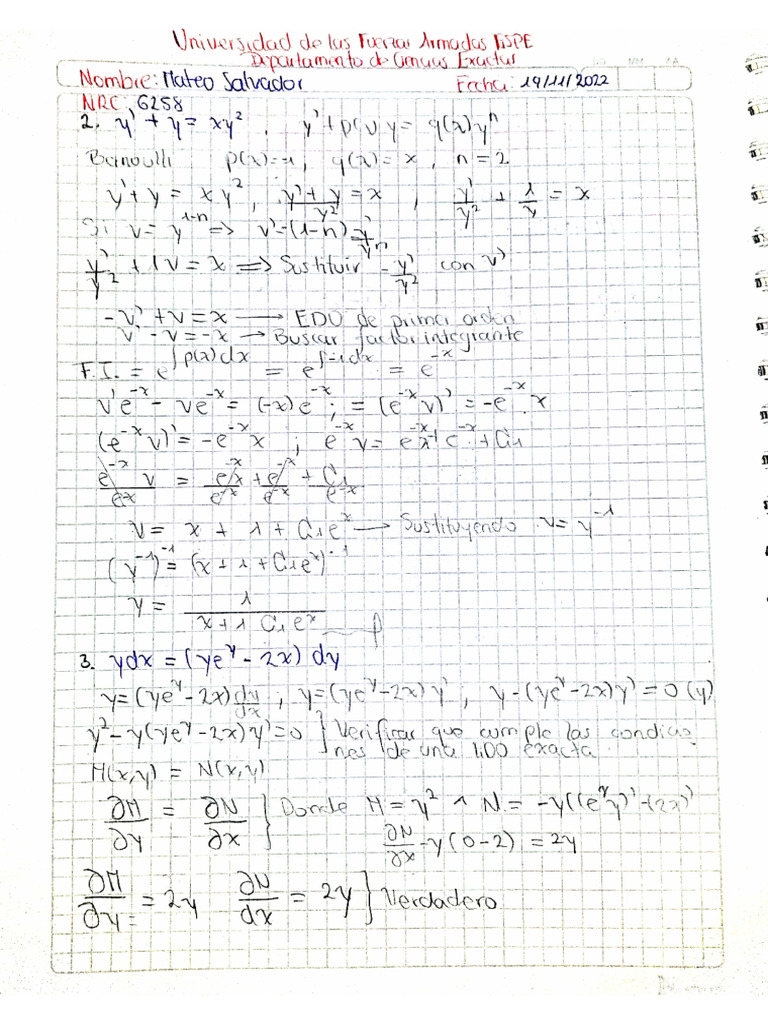 Universidad de las Fuerzas Armadas ESPE
Departamento de Ciencias Exactas
Nombre: Mateo Salvador Fecha: 14/11/2022
NRC: 6258
2. y' + y = xy², y' + p(x) y = q(x) yⁿ
Bernoulli p(x)=1, q(x)=x, n=2
y' + y = xy², (y' + y)/y² = x, y'/y² + 1/y = x
Si v = y^(1-n) => v' = (1-n) y'/yⁿ
y'/y² + 1v = x => Sustituir -y'/y² con v'
-v' + v = x → EDO de primer orden
v' - v = -x → Buscar factor integrante
F.I. = e^∫p(x)dx = e^∫-1dx = e^-x
v'e^-x - ve^-x = (-x)e^-x ; = (e^-x v)' = -e^-x . x
(e^-x v)' = -e^-x x ; e^-x v = e^-x x + e^-x + C1
e^-x v / e^-x = e^-x x / e^-x + e^-x / e^-x + C1 / e^-x
v = x + 1 + C1e^x → Sustituyendo v = y^-1
(y^-1)^-1 = (x + 1 + C1e^x)^-1
y = 1 / (x + 1 C1e^x)
3. ydx = (ye^y - 2x) dy
y = (ye^y - 2x) dy/dx ; y = (ye^y - 2x) y' ; y - (ye^y - 2x) y' = 0 (y)
y² - y(ye^y - 2x) y' = 0 } Verificar que cumple las condicio
nes de una EDO exacta.
M(x,y) = N(x,y)
∂M/∂y = ∂N/∂x } Donde M = y² ∧ N = -y((e^y y)' - (2x)'
∂N/∂x - y(0 - 2) = 2y
∂M/∂y = 2y ∂N/dx = 2y } Verdadero